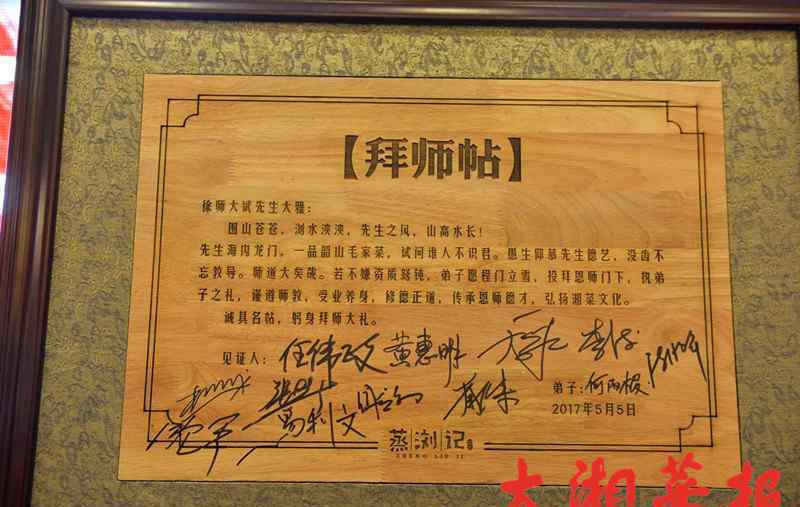 【拜师帖】
徐师大斌先生大雅：
围山苍苍，浏水泱泱，先生之风，山高水长！
先生海内龙门，一品韶山毛家菜，试问谁人不识君。愚生仰慕先生德艺，没齿不
忘教导。师道大矣哉。若不嫌资质驽钝，弟子愿程门立雪，投拜恩师门下，执弟
子之礼，谨遵师教，受业养身，修德正道，传承恩师德才，弘扬湘菜文化。
诚具名帖，躬身拜师大礼。
见证人：任伟政 黄惠明
弟子：何雨横
易利文
2017年5月5日
蒸浏记
ZHENG LIU JI
大湘菜报